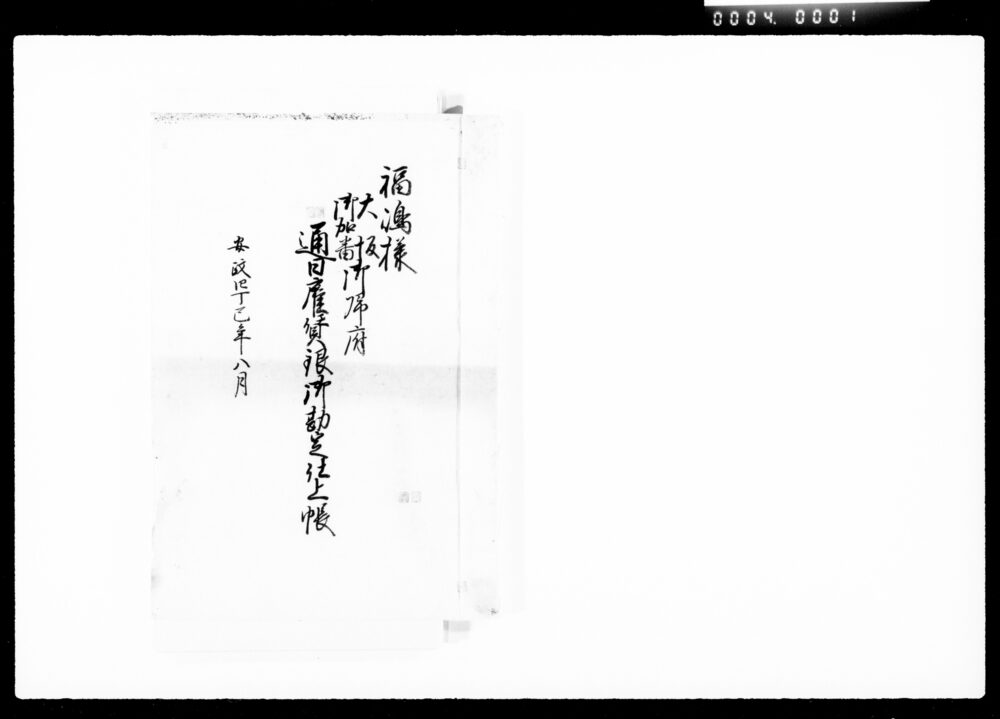 0004. 0001
福嶋様
大坂御帰府
御加番
通日雇賃銀御勘定仕上帳
安政四丁巳年八月